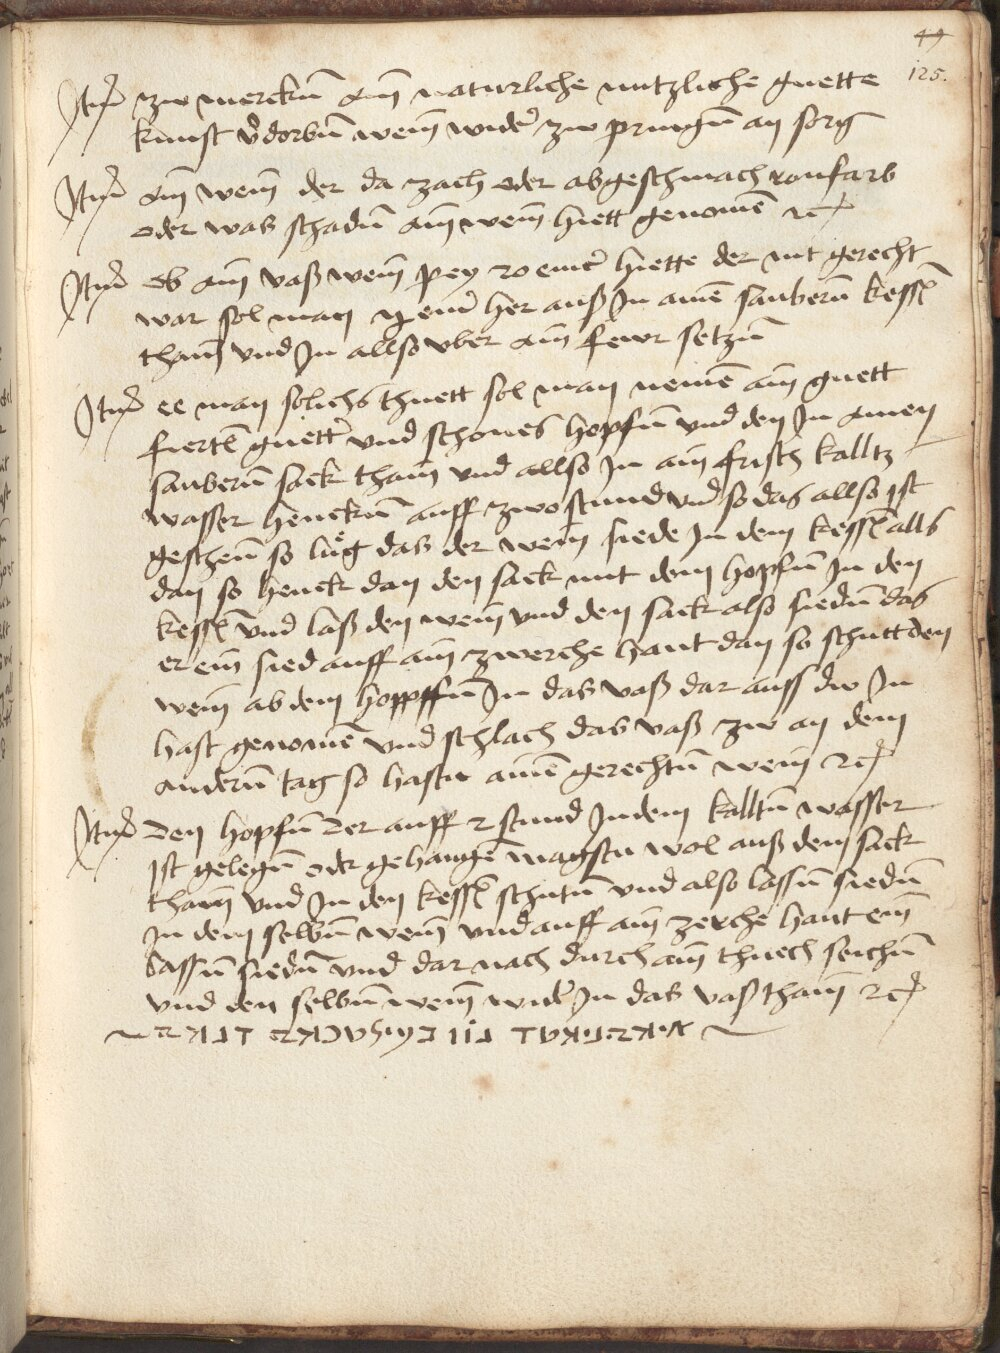 49
125.
Itm̃ zw merckñ ain naturliche nutzliche guette
kunst v̈dorbñ wein widẽ zw pringñ an sorg
Itm̃ ain wein der da zach oder abgeschmach ronfarb
oder was schadñ ain wein hiett genomẽ ꝛc
Itm̃ ob ain vaß wein pey 20 emer hiette der nit gerecht
war sol man emer her auß In ainẽ sauberñ kessl
thain vnd In allso vber ain fewr setzñ
Itm̃ ee man solichs thuett sol man nemẽ ain guett
fiertl guetter vnd schones hopfñ vnd den In ainen
sauberñ sack thain vnd allso In ain frisch kalltz
wasser henckñ auff zwo stund vnd so das allso Ist
geschehñ so lůg das der wein siede In dem kessl alls
dan so henck dan den sack mit dem hopfñ In den
kessl vnd laß den wein vnd den sack also siedñ das
er ein sied auff ain zwerche hant dan so schutt den
wein ab dem hopffñ In das vaß dar auss dw In
hast genomẽ vnd schlach das vaß zw an dem
anderñ tag so hastu ainẽ gerechtñ wein ꝛc
Itm̃ Den hopfñ Der auff 2 stund In dem kalltñ wasser
Ist gelegñ oder gehangẽ magstu wol auß dem sack
thain vnd In den kessl schutñ vnd also lassñ siedñ
In dem selbñ wein vnd auff ain zerche hant ein
lassñ siedñ vnd dar nach durch ain thuech seichñ
vnd den selbñ wein widẽ In das vaß thain ꝛc